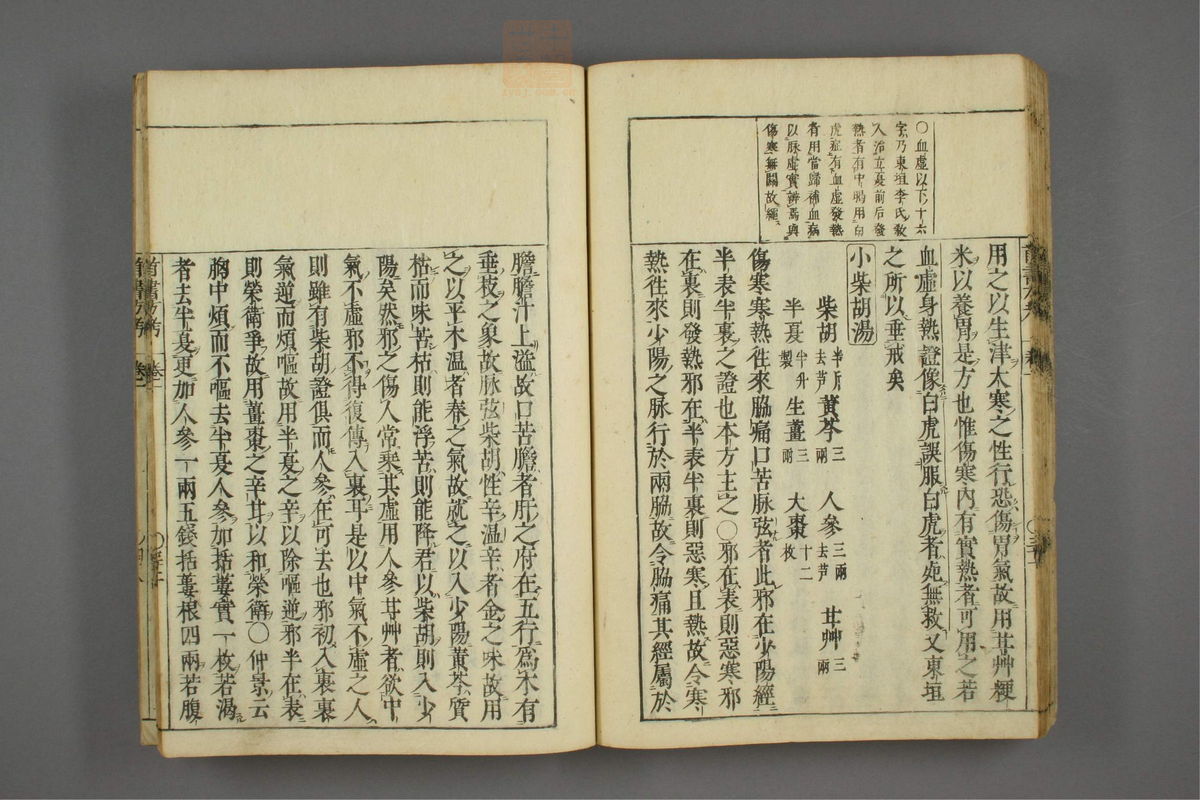 ○血虛以下十六
字乃東垣李氏教
人冷立夏前后發
熱者有中暍用白
虎症有血虛發熱
有用當歸補血病
以脉虛實辨焉與
傷寒無關故繩
用之以生津大寒之性行恐傷胃氣故用甘艸粳
米以養胃是方也惟傷寒內有實熱者可用之若
血虛身熱證像白虎誤服白虎者死無救又東垣
之所以垂戒矣
小柴胡湯
柴胡半斤去芦 黃芩三兩 人參三兩去芦 甘艸三兩
半夏半升製 生薑三兩 大棗十二枚
傷寒寒熱往來脇痛口苦脉弦者此邪在少陽經
半表半裏之證也本方主之○邪在表則惡寒邪
在裏則發熱邪在半表半裏則惡寒且熱故令寒
熱往來少陽之脉行於兩脇故令脇痛其經屬於
膽膽汁上溢故口苦膽者肝之府在五行爲木有
垂枝之象故脉弦柴胡性辛溫辛者金之味故用
之以平木溫者春之氣故就之以入少陽黃芩質
枯而味苦枯則能浮苦則能降君以柴胡則入少
陽矣然邪之傷人常乘其虛用人參甘艸者欲中
氣不虛邪不得復傳入裏耳是以中氣不虛之人
則雖有柴胡證俱而人參在可去也邪初入裏裏
氣逆而煩嘔故用半夏之辛以除嘔逆邪半在表
則榮衛爭故用薑棗之辛甘以和榮衛○仲景云
胸中煩而不嘔去半夏人參加括蔞實一枚若渴
者去半夏更加人參一兩五錢括蔞根四兩若腹